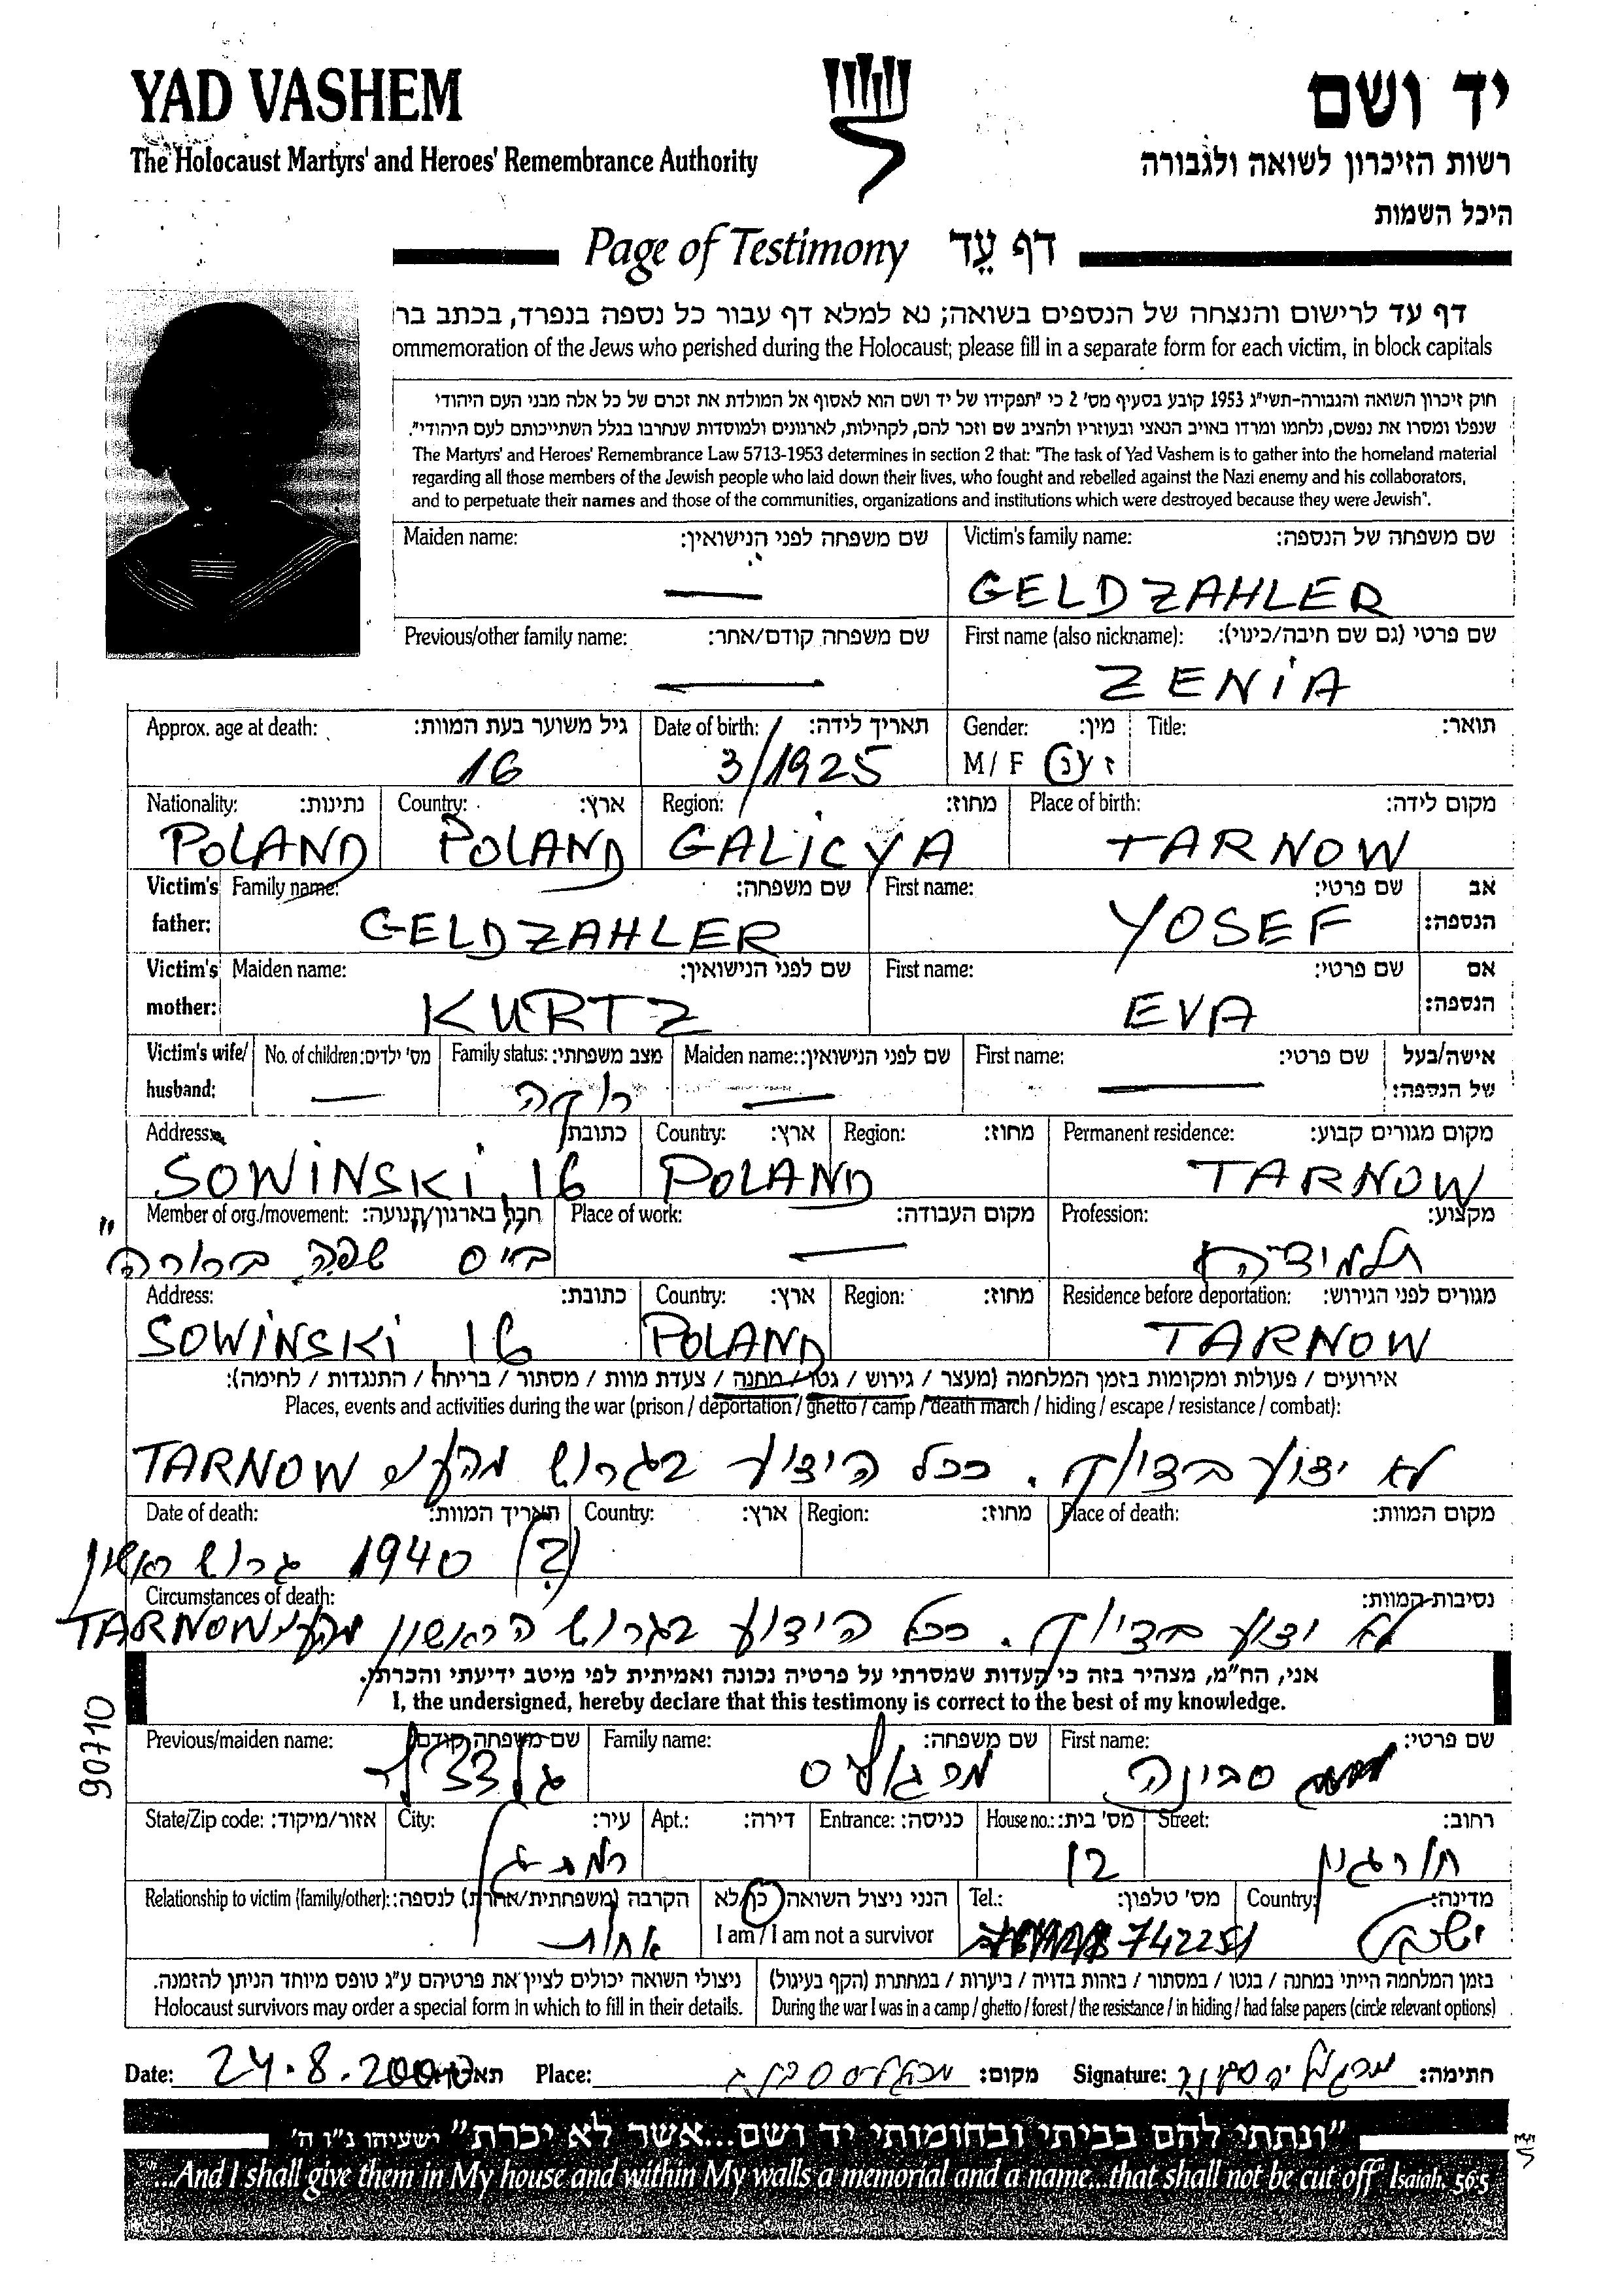 YAD VASHEM
יד ושם
The Holocaust Martyrs' and Heroes' Remembrance Authority
רשות הזיכרון לשואה ולגבורה
היכל השמות
Page of Testimony דף עֵד
דף עד לרישום והנצחה של הנספים בשואה; נא למלא דף עבור כל נספה בנפרד, בכתב בר
ommemoration of the Jews who perished during the Holocaust; please fill in a separate form for each victim, in block capitals
חוק זיכרון השואה והגבורה-תשי"ג 1953 קובע בסעיף מס' 2 כי "תפקידו של יד ושם הוא לאסוף אל המולדת את זכרם של כל אלה מבני העם היהודי
שנפלו ומסרו את נפשם, נלחמו ומרדו באויב הנאצי ובעוזריו ולהציב שם וזכר להם, לקהילות, לארגונים ולמוסדות שנחרבו בגלל השתייכותם לעם היהודי".
The Martyrs' and Heroes' Remembrance Law 5713-1953 determines in section 2 that: "The task of Yad Vashem is to gather into the homeland material
regarding all those members of the Jewish people who laid down their lives, who fought and rebelled against the Nazi enemy and his collaborators,
and to perpetuate their names and those of the communities, organizations and institutions which were destroyed because they were Jewish".
Maiden name: שם משפחה לפני הנישואין: Victim's family name: שם משפחה של הנספה:
GELDZAHLER
Previous/other family name: שם משפחה קודם/אחר: First name (also nickname): שם פרטי (גם שם חיבה/כינוי):
ZENIA
Approx. age at death: גיל משוער בעת המוות: Date of birth: תאריך לידה: Gender: מין: Title: תואר:
16 3/1925 M / F ז / נ
Nationality: נתינות: Country: ארץ: Region: מחוז: Place of birth: מקום לידה:
POLAND POLAND GALICYA TARNOW
Victim's father: Family name: שם משפחה: First name: שם פרטי: אב הנספה:
GELDZAHLER YOSEF
Victim's mother: Maiden name: שם לפני הנישואין: First name: שם פרטי: אם הנספה:
KURTZ EVA
Victim's wife/ husband: No. of children: מס' ילדים: Family status: מצב משפחתי: Maiden name: שם לפני הנישואין: First name: שם פרטי: אישה/בעל של הנספה:
רווקה
Address: כתובת: Country: ארץ: Region: מחוז: Permanent residence: מקום מגורים קבוע:
SOWINSKI, 16 POLAND TARNOW
Member of org./movement: חבר בארגון/תנועה: Place of work: מקום העבודה: Profession: מקצוע:
ביס שפה ברורה" תלמידה
Address: כתובת: Country: ארץ: Region: מחוז: Residence before deportation: מגורים לפני הגירוש:
SOWINSKI 16 POLAND TARNOW
אירועים / פעולות ומקומות בזמן המלחמה (מעצר / גירוש / גטו / מחנה / צעדת מוות / מסתור / בריחה / התנגדות / לחימה):
Places, events and activities during the war (prison / deportation / ghetto / camp / death march / hiding / escape / resistance / combat):
לא ידוע בדיוק. ככל הידוע בגרוש מהעיר TARNOW
Date of death: תאריך המוות: Country: ארץ: Region: מחוז: Place of death: מקום המוות:
(?) 1940 גרוש ראשון
Circumstances of death: נסיבות המוות:
לא ידוע בדיוק. ככל הידוע בגרוש הראשון מהעיר TARNOW
אני, הח"מ, מצהיר בזה כי העדות שמסרתי על פרטיה נכונה ואמיתית לפי מיטב ידיעתי והכרתי.
I, the undersigned, hereby declare that this testimony is correct to the best of my knowledge.
90710
Previous/maiden name: שם משפחה קודם: Family name: שם משפחה: First name: שם פרטי:
סבינה
State/Zip code: אזור/מיקוד: City: עיר: Apt.: דירה: Entrance: כניסה: House no.: מס' בית: Street: רחוב:
רמת גן 12
Relationship to victim (family/other): הקרבה (משפחתית/אחרת) לנספה: הנני ניצול השואה כן/לא Tel.: מס' טלפון: Country: מדינה:
אחות I am / I am not a survivor 742251 ישראל
ניצולי השואה יכולים לציין את פרטיהם ע"ג טופס מיוחד הניתן להזמנה. בזמן המלחמה הייתי במחנה / בגטו / במסתור / בזהות בדויה / ביערות / במחתרת (הקף בעיגול)
Holocaust survivors may order a special form in which to fill in their details. During the war I was in a camp / ghetto / forest / the resistance / in hiding / had false papers (circle relevant options)
Date: 24.8.2000 תאריך: Place: מקום: Signature: חתימה:
"ונתתי להם בביתי ובחומותי יד ושם...אשר לא יכרת" ישעיהו נ"ו ה'
"...And I shall give them in My house and within My walls a memorial and a name...that shall not be cut off" Isaiah, 56:5